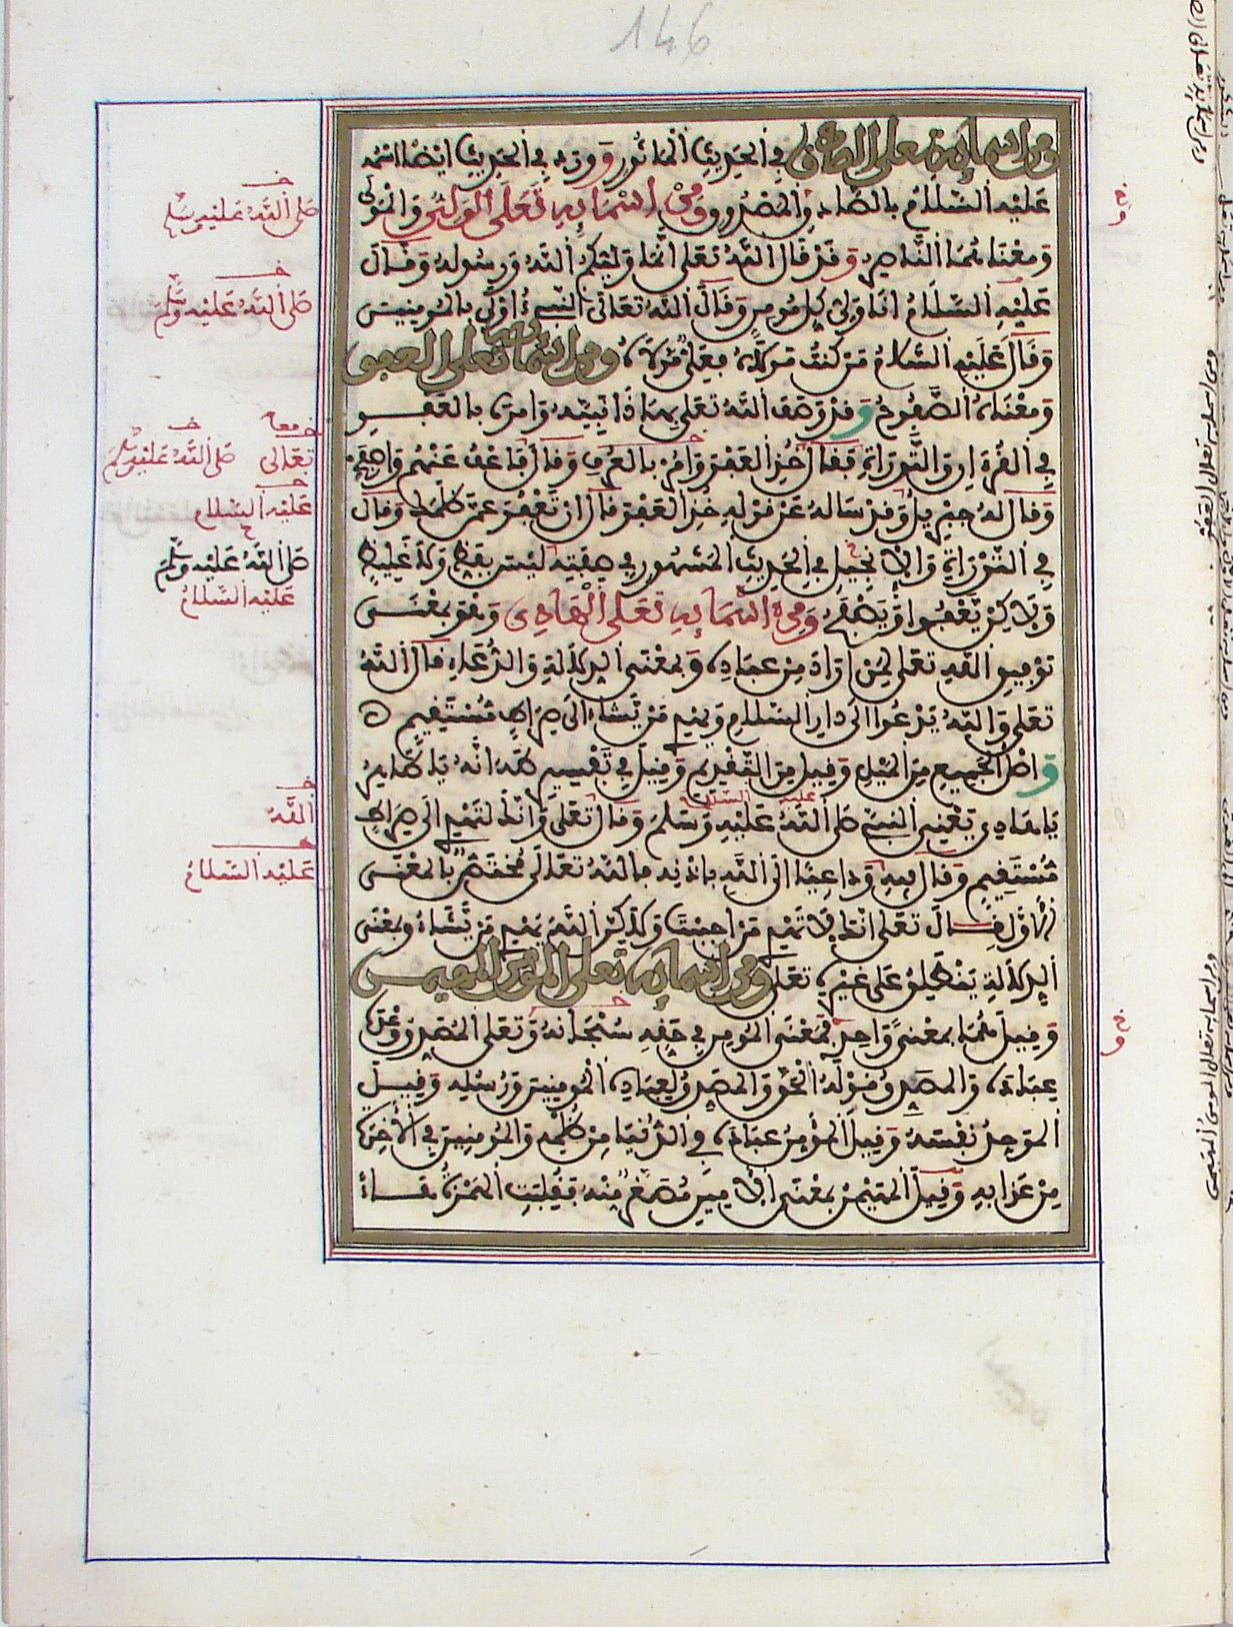 146
ومن اسمايه تعلى الصادق في الحديث المأثور وورد في الحديث ايضا اسمه
عليه السلام بالصادق المصدوق ومن اسمايه تعلى الولي والمولى
ومعناهما الناصر وقد قال الله تعلى انما وليكم الله ورسوله وقال
عليه السلام انا ولي كل مومن وقال الله تعالى النبيء اولى بالمومنين
وقال عليه السلام من كنت مولاه فعلي مولاه ومن اسمايه تعلى العفو
ومعناه الصفوح وقد وصف الله تعلى بهذا نبيه وامره بالعفو
في القرءان والتورية فقال خذ العفو وامر بالعرف وقال فاعف عنهم واصفح
وقال له جبريل وقد ساله عن قوله خذ العفو قال ان تعفو عمن ظلمك وقال
في التورية والانجيل في الحديث المشهور في صفته ليس بفظ ولا غليظ
ولاكن يعفو او يصفح ومن اسمايه تعلى الهادي وهو بمعنى
توفيق الله تعلى لمن اراد من عباده وبمعنى الدلالة والدعاء قال الله
تعلى والله يدعوا الى دار السلام ويهدي من يشاء الى صراط مستقيم ه
واصل الجميع من الميل وقيل من التقديم وقيل في تفسير طه انه يا طاهر
عليه السلام
يا هادي يعني النبيء صلى الله عليه وسلم وقال تعلى وانك لتهدي الى صراط
مستقيم وقال فيه وداعيا الى الله باذنه فالله تعالى مختص بالمعنى
الاول قال تعلى انك لا تهدي من احببت ولاكن الله يهدي من يشاء وبمعنى
الدلالة ينطلق على غيره تعلى ومن اسمايه تعلى المومن المهيمن
وقيل هما بمعنى واحد فمعنى المومن في حقه سبحانه وتعلى المصدق وعده
عباده والمصدق قوله الحق والمصدق لعباده المومنين ورسله وقيل
الموحد نفسه وقيل المومن عباده في الدنيا من ظلمه والمومنين في الاخرة
من عذابه وقيل المهيمن بمعنى الامين مصغر منه فقلبت الهمزة هاء
صلى الله عليه وسلم
صلى الله عليه وسلم
تعالى
صلى الله عليه وسلم
عليه السلام
صلى الله عليه وسلم
عليه السلام
الله
عليه السلام